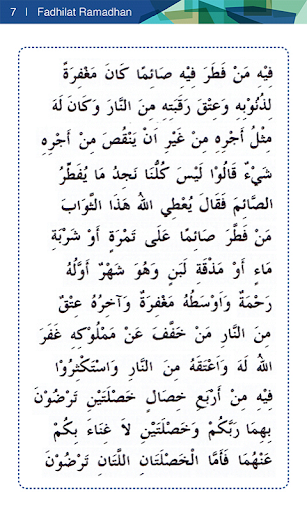 7 | Fadhilat Ramadhan
فِيْهِ مَنْ فَطَرَ فِيْهِ صَائِمًا كَانَ مَغْفِرَةً
لِذُنُوْبِهِ وَعِتْقَ رَقَبَتِهِ مِنَ النَّارِ وَكَانَ لَهُ
مِثْلُ أَجْرِهِ مِنْ غَيْرِ اَنْ يَنْقُصَ مِنْ أَجْرِهِ
شَيْءٌ قَالُوْا لَيْسَ كُلُّنَا نَجِدُ مَا يُفَطِّرُ
الصَّائِمَ فَقَالَ يُعْطِي اللهُ هَذَا الثَّوَابَ
مَنْ فَطَّرَ صَائِمًا عَلَى تَمْرَةٍ أَوْ شَرْبَةِ
مَاءٍ أَوْ مَذْقَةِ لَبَنٍ وَهُوَ شَهْرٌ أَوَّلُهُ
رَحْمَةٌ وَاَوْسَطُهُ مَغْفِرَةٌ وَآخِرُهُ عِتْقٌ
مِنَ النَّارِ مَنْ خَفَّفَ عَنْ مَمْلُوْكِهِ غَفَرَ
اللهُ لَهُ وَاَعْتَقَهُ مِنَ النَّارِ وَاسْتَكْثِرُوْا
فِيْهِ مِنْ أَرْبَعِ خِصَالٍ خَصْلَتَيْنِ تَرْضُوْنَ
بِهِمَا رَبَّكُمْ وَخَصْلَتَيْنِ لاَ غَنَاءَ بِكُمْ
عَنْهُمَا فَأَمَّا الْخَصْلَتَانِ اللَّتَانِ تَرْضُوْنَ